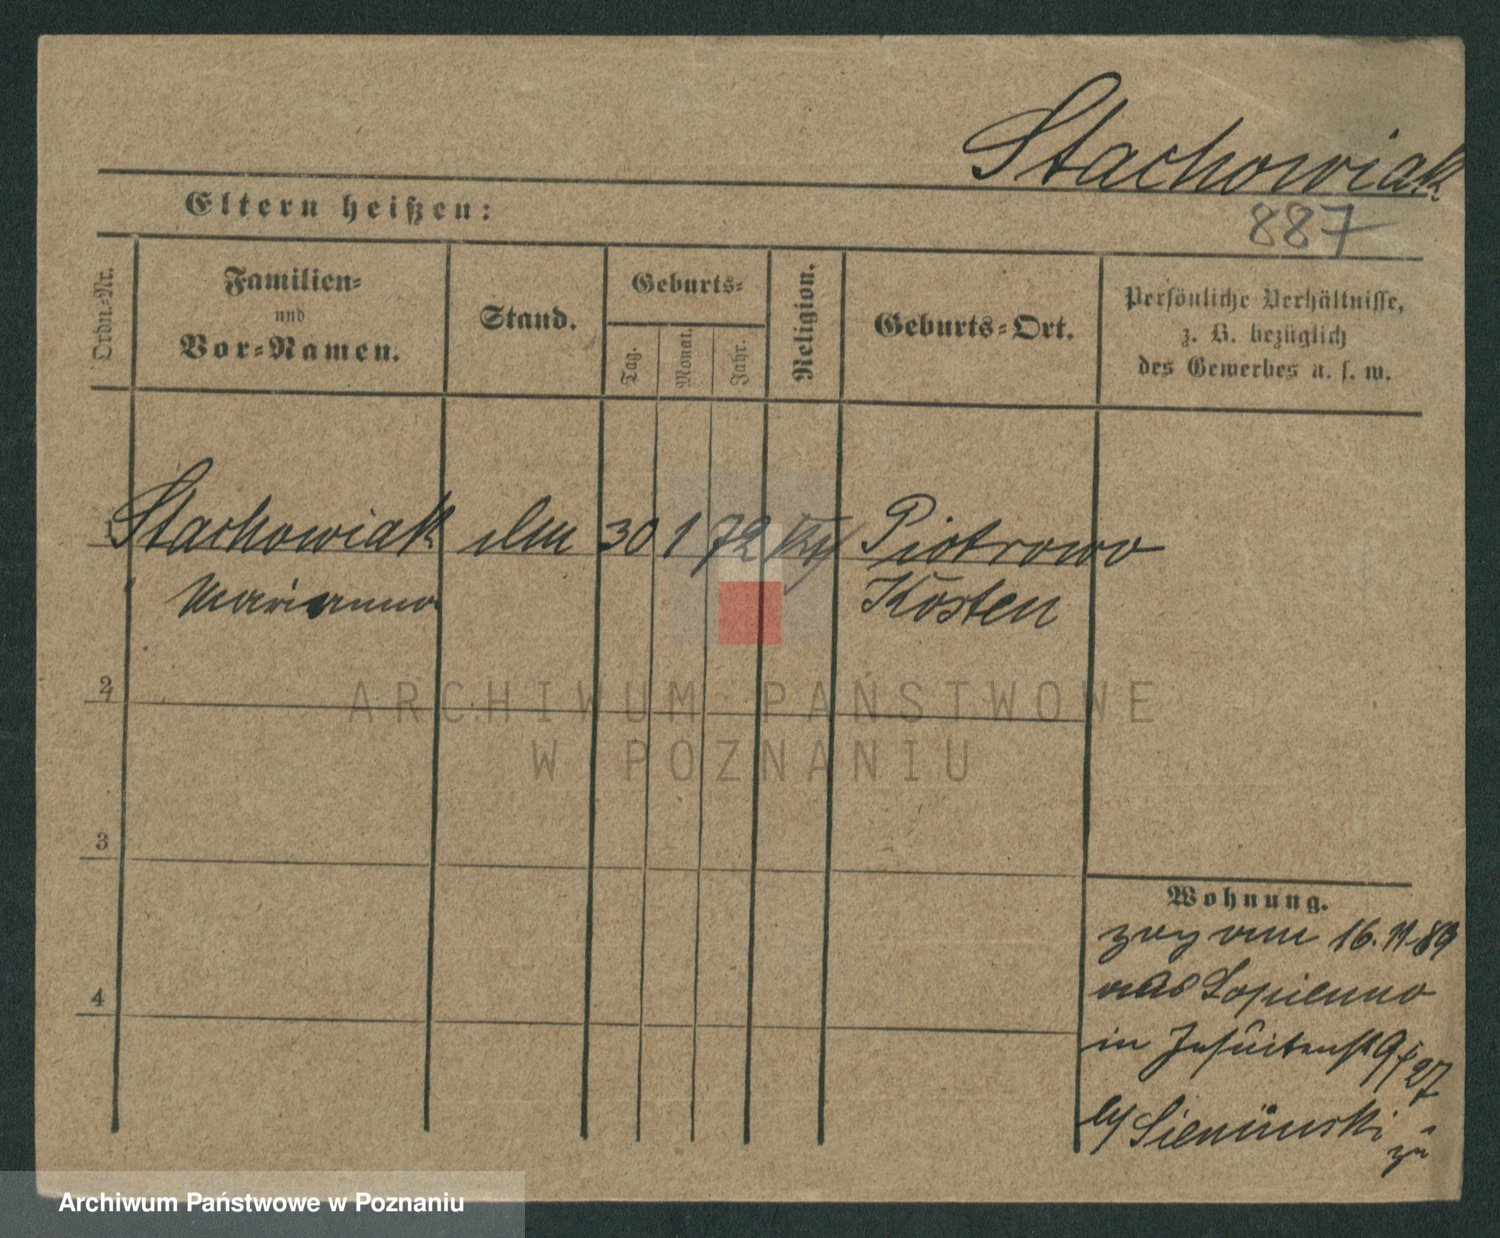 Stachowiak
887
Eltern heißen:
Ordn.-Nr.
Familien-
und
Vor-Namen.
Stand.
Geburts-
Tag.
Monat.
Jahr.
Religion.
Geburts-Ort.
Persönliche Verhältnisse,
z. B. bezüglich
des Gewerbes u. s. w.
1 Stachowiak 30 1 72 Piotrowo
Marianna Kosten
2
3
4
Wohnung.
16. 11 89
aus Lopienno
in Jesuitenst 9 27
by
ARCHIWUM PAŃSTWOWE
W POZNANIU
Archiwum Państwowe w Poznaniu